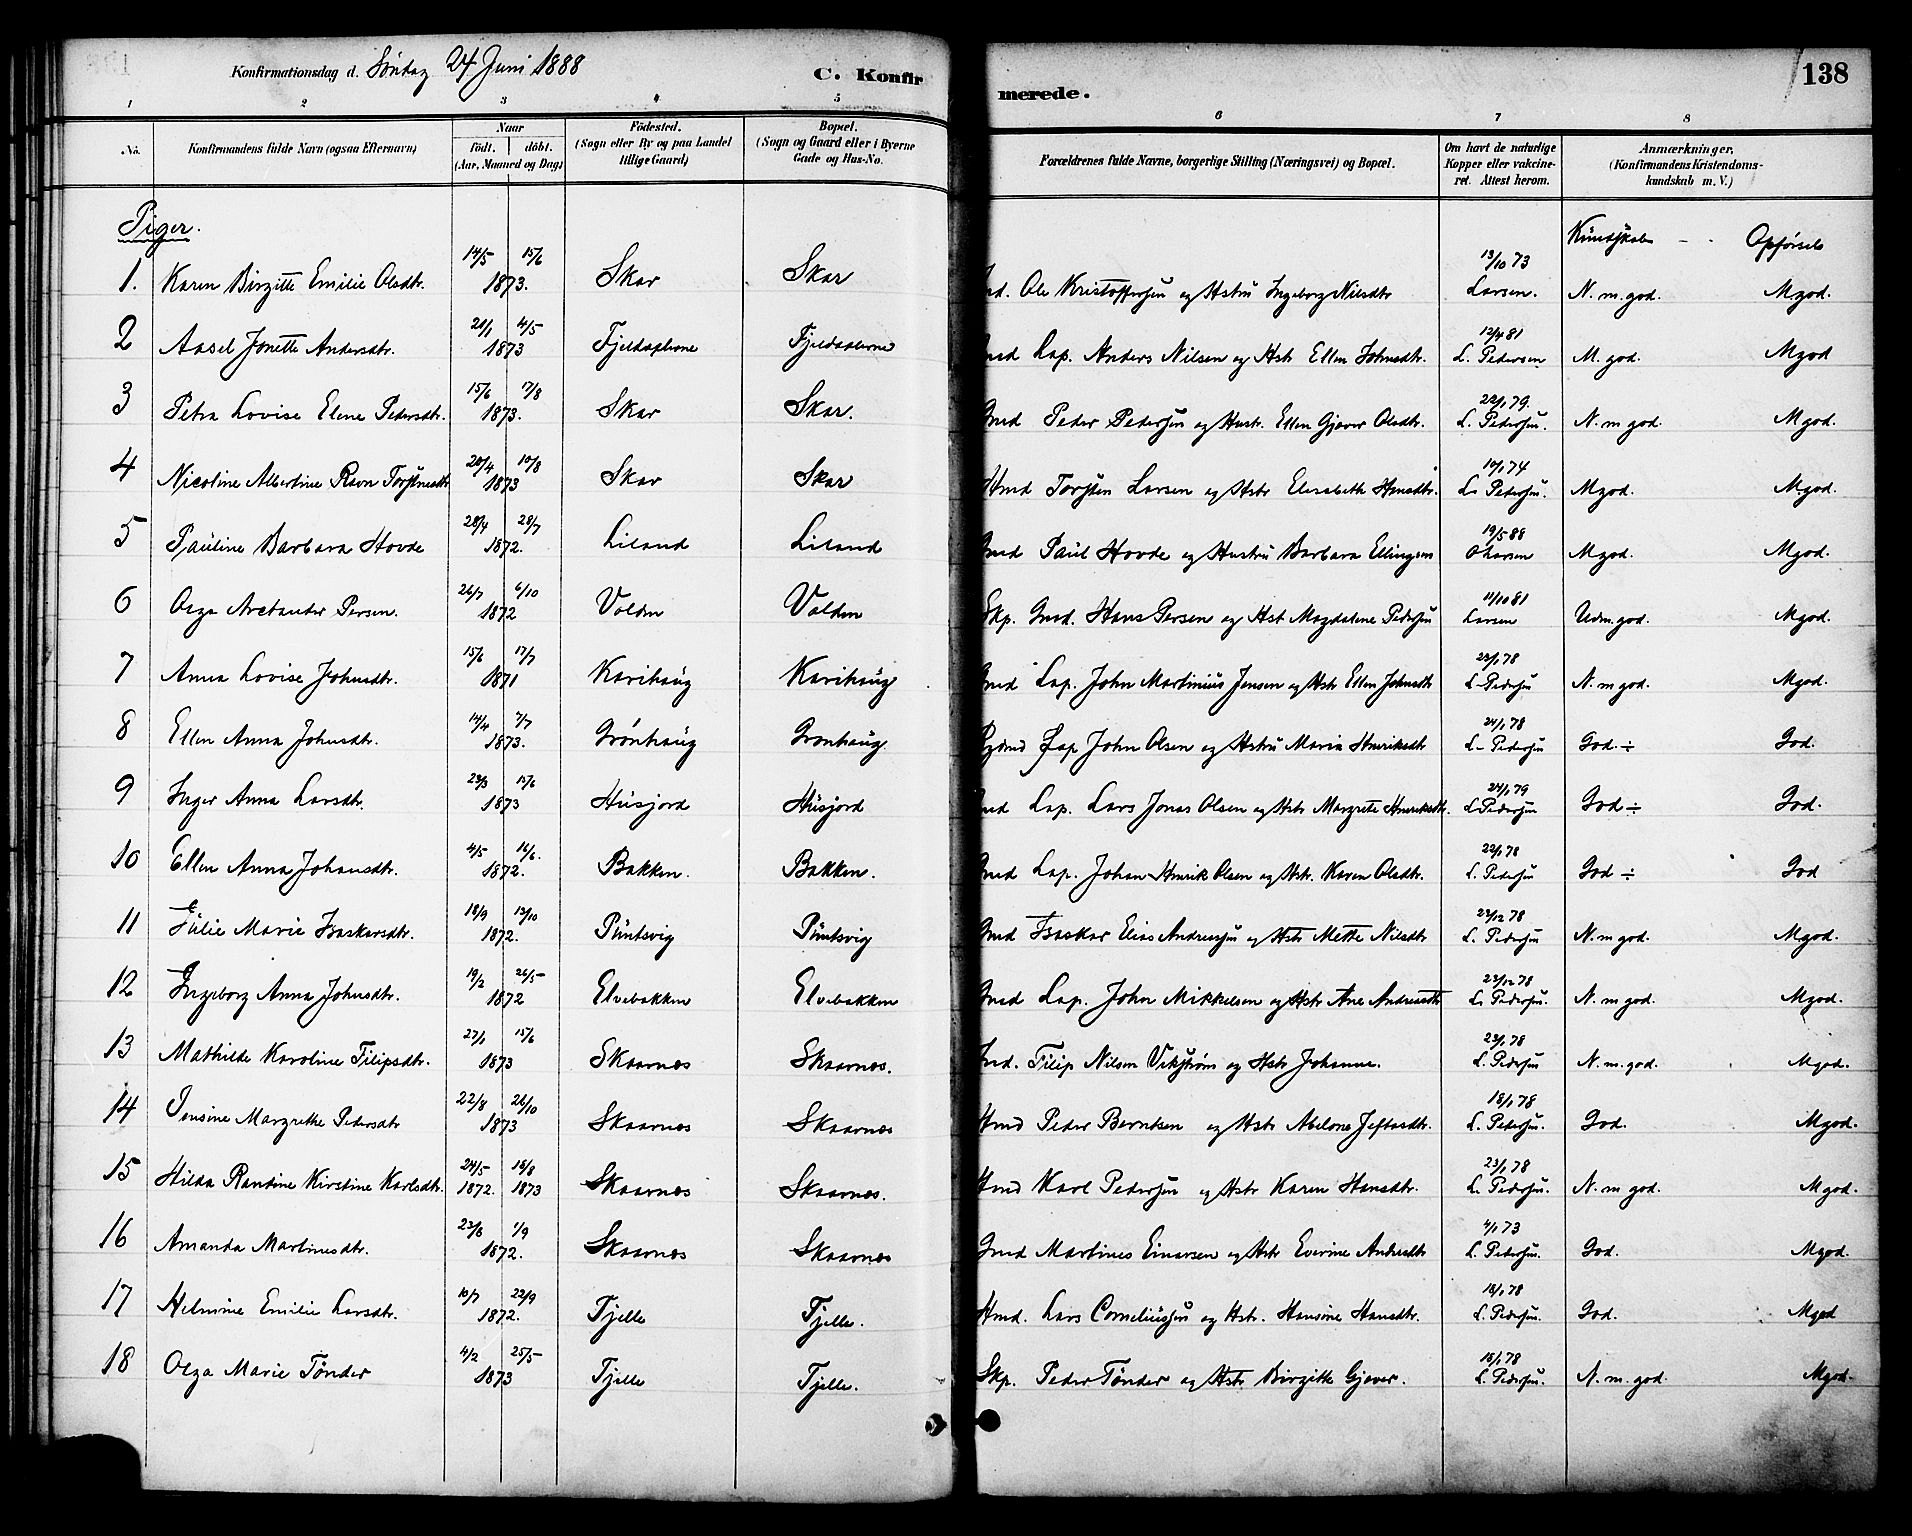 Konfirmationsdag d. Søndag 24 Juni 1888 C. Konfirmerede. 138
1 2 3 4 5 6 7 8
No. Konfirmandens fulde Navn (ogsaa Efternavn) Naar født. døbt. (Aar, Maaned og Dag) Fødested. (Sogn eller By og paa Landet tillige Gaard) Bopæl. (Sogn og Gaard eller i Byerne Gade og Hus-No. Forældrenes fulde Navne, borgerlige Stilling (Næringsvei) og Bopæl. Om havt de naturlige Kopper eller vakcineret. Attest herom. Anmærkninger, (Konfirmandens Kristendomskundskab m. V.)
Piger. Kundskab - - Opførsels
1. Karen Birgitte Emilie Olsdtr. 14/5 15/6 1873. Skar Skar Ole Kristoffersen og Hstru Ingeborg Nilsdtr 13/10 73 Larsen. N. m. god. Mgod.
2 Aasel Jonette Andersdtr. 21/1 4/5 1873 Lap. Anders Nilsen og Hstr Ellen Johnsdtr. 12/4 81 L. Pedersen M. god. Mgod
3 Petra Lovise Elene Pedersdtr. 15/6 17/8 1873. Skar Skar. Gmd Peder Pedersen og Hustr. Ellen Gjæver Olsdtr. 22/1 79. L. Pedersen. N. m god. Mgod.
4 Nicoline Albertine Ravn Torstensdtr 20/4 10/8 1873 Skar Skar Hmd Torsten Larsen og Hstr Elisabeth Hansdtr. 10/1 74 L. Pedersen. Mgod. Mgod.
5 Pauline Barbara Hovde 28/4 28/7 1872. Liland Liland Gmd Paul Hovde og Hustru Barbara Ellingsen 19/5 88 O Larsen Mgod. Mgod.
6 Olga Arctander Persen. 26/7 6/10 1872 Volden Volden Skp. Gmd. Hans Persen og Hst Magdalene Pedersen 11/10 81 Larsen Udm. god. Mgod.
7 Anna Lovise Johnsdtr. 15/6 17/7 1871 Karihaug Karihaug Gmd Lap. John Martinius Jensen og Hstr Ellen Johnsdtr 23/1 78 L Pedersen N. m god. Mgod.
8 Ellen Anna Johnsdtr. 14/4 7/7 1873. Grønhaug Grønhaug Lap John Olsen og Hstru Maria Henriksdtr 24/1 78 L. Pedersen God. ÷ God.
9 Inger Anna Larsdtr. 23/3 15/6 1873 Husjord Husjord Gmd Lap. Lars Jonas Olsen og Hstr Margrete Henriksdtr. 24/1 79 L Pedersen God ÷ God.
10 Ellen Anna Johansdtr. 4/5 16/6. 1872. Bakken. Bakken. Gmd Lap. Johan Henrik Olsen og Hstr. Karen Olsdtr. 22/1 78 L. Pedersen God ÷ God
11 Julie Marie Isaksdtr. 18/9 13/10 1872. Puntsvig Puntsvig Gmd Elias Andreassen og Hstr Mette Nilsdtr 23/12 78 L. Pedersen N. m god. Mgod.
12 Ingeborg Anna Johnsdtr. 19/2 26/5 1872 Elvebakken Elvebakken Gmd Lap. John Mikkelsen og Hstr Ane Andreasdtr 23/12 78 L. Pedersen. N. m god. Mgod.
13 Mathilde Karoline Filipsdtr. 27/1 15/6 1873 Skaarnes Skaarnes. Ind. Filip Nilsen Vikstrøm og Hstr Johanne. 23/1 78 L. Pedersen N. m. god. Mgod.
14 Jensine Margrethe Pedersdtr 22/8 26/10 1873 Skaarnes Skaarnes Hmd Peder Berntsen og Hstr Abelone Jeftasdtr. 18/1 78 L. Pedersen. God. Mgod.
15 Hilda Randine Kirstine Karlsdtr. 24/5 1872. 16/8 1873 Skaarnes Skaarnes. Hmd Karl Pedersen og Hstr Karen Hansdtr. 23/1 78 L. Pedersen. N. m god. Mgod.
16 Amanda Martinesdtr. 23/6 1/9 1872. Skaarnes Skaarnes Gmd Martines Einarsen og Hstr Everine Andersdtr 4/1 73 L. Pedersen. God. Mgod.
17 Helmine Emilie Larsdtr. 10/7 22/9 1872. Fjelle Fjelle. Hmd. Lars Corneliussen og Hstr. Hansine Hansdtr. 18/1 78 L. Pedersen. God. Mgod
18 Olga Marie Tønder 4/2 25/5 1873 Fjelle Fjelle. Skp. Peder Tønder og Hstr Birgitte Gjæver. 18/1 78 L. Pedersen. N. m. god. Mgod.